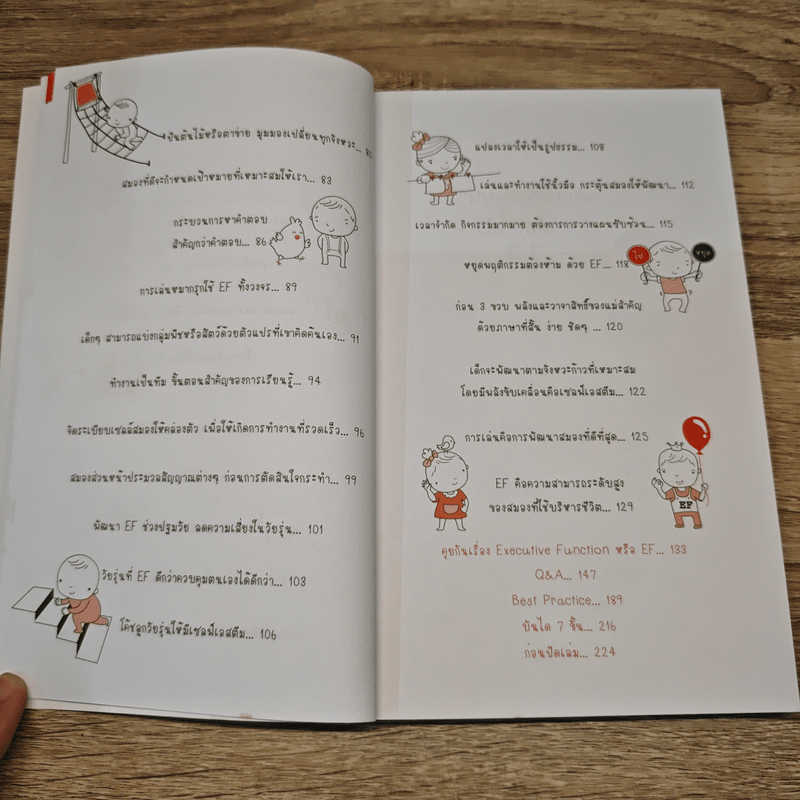 ปีนต้นไม้หรือตาข่าย มุมมองเปลี่ยนทุกจังหวะ...
สมองที่ดีจะกำหนดเป้าหมายที่เหมาะสมให้เรา... 83
กระบวนการหาคำตอบ
สำคัญกว่าคำตอบ... 86
การเล่นหมากรุกใช้ EF ทั้งวงจร... 89
เด็กๆ สามารถแบ่งกลุ่มพืชหรือสัตว์ด้วยตัวแปรที่เขาคิดค้นเอง... 91
ทำงานเป็นทีม ขั้นตอนสำคัญของการเรียนรู้... 94
จัดระเบียบเซลล์สมองให้คล่องตัว เพื่อให้เกิดการทำงานที่รวดเร็ว... 96
สมองส่วนหน้าประมวลสัญญาณต่างๆ ก่อนการตัดสินใจกระทำ... 99
พัฒนา EF ช่วงปฐมวัย ลดความเสี่ยงในวัยรุ่น... 101
วัยรุ่นที่ EF ดีกว่าควบคุมตนเองได้ดีกว่า... 103
โค้ชลูกวัยรุ่นให้มีเซลฟ์เอสตีม... 106
แปลงเวลาให้เป็นรูปธรรม... 108
เล่นและทำงานใช้นิ้วมือ กระตุ้นสมองให้พัฒนา... 112
เวลาจำกัด กิจกรรมมากมาย ต้องการการวางแผนซับซ้อน... 115
ไป
หยุด
หยุดพฤติกรรมต้องห้าม ด้วย EF... 118
ก่อน 3 ขวบ พลังและวาจาสิทธิ์ของแม่สำคัญ
ด้วยภาษาที่สั้น ง่าย ชัดๆ ... 120
เด็กจะพัฒนาตามจังหวะก้าวที่เหมาะสม
โดยมีพลังขับเคลื่อนคือเซลฟ์เอสตีม... 122
การเล่นคือการพัฒนาสมองที่ดีที่สุด... 125
EF คือความสามารถระดับสูง
ของสมองที่ใช้บริหารชีวิต... 129
EF
คุยกันเรื่อง Executive Function หรือ EF... 133
Q&A... 147
Best Practice... 189
บันได 7 ขั้น... 216
ก่อนปิดเล่ม... 224